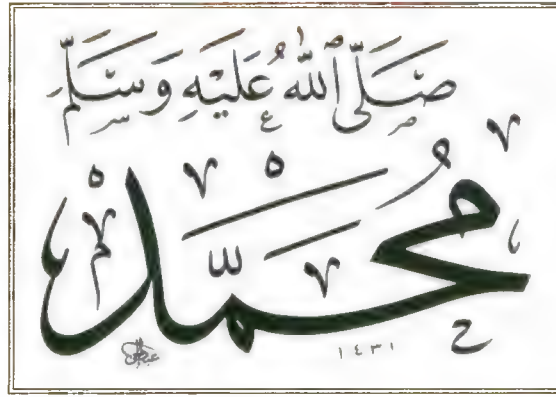 صَلَّى ٱللّٰهُ عَلَيْهِ وَسَلَّمَ
مُحَمَّدٌ
١٤٣١